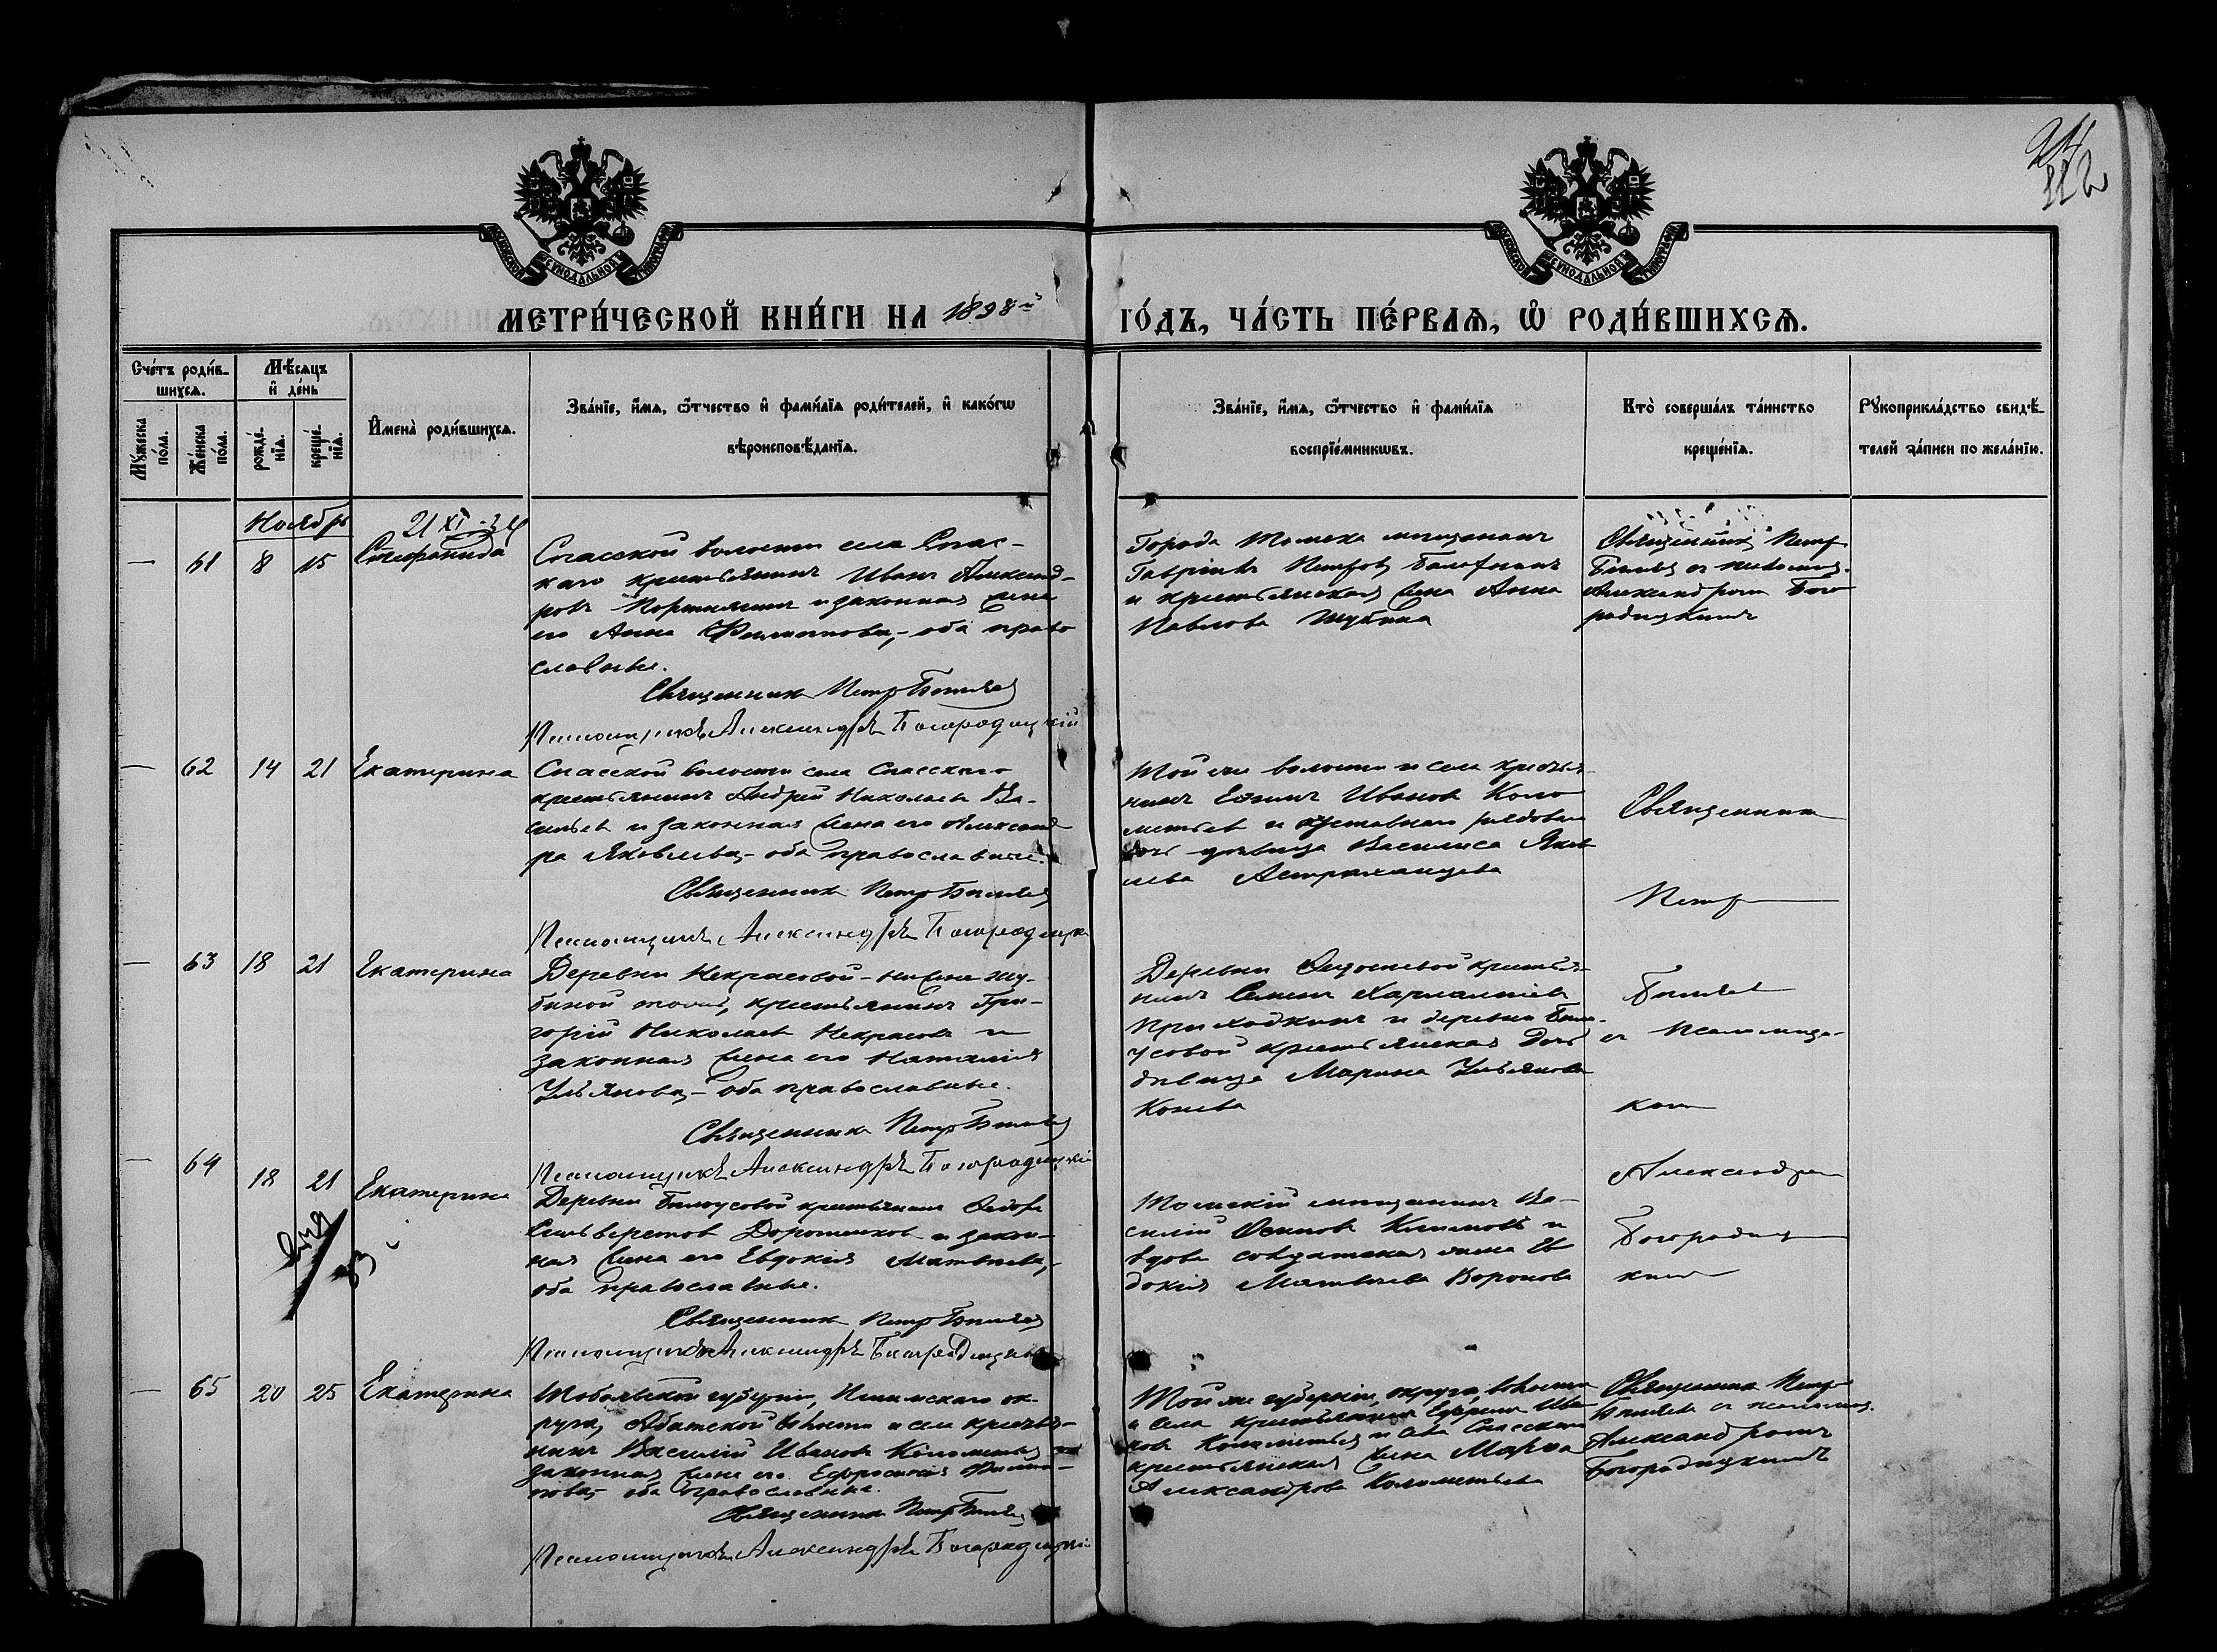 24
112
МОСКОВСКОЙ СѴНОДАЛЬНОЙ ТИПОГРАФІИ
МОСКОВСКОЙ СѴНОДАЛЬНОЙ ТИПОГРАФІИ
МЕТРИ́ЧЕСКОЙ КНИ́ГИ НА 1898й
ГО́ДЪ, ЧА́СТЬ ПЕ́РВАѦ, Ѡ҆ РОДИ́ВШИХСѦ.
Сче́тъ роди́в-
шихсѧ.
Мꙋ́жеска по́ла.
Же́нска по́ла.
Мѣ́сѧцъ
и҆ де́нь
рожде́нїѧ.
креще́нїѧ.
И҆мена̀ роди́вшихсѧ.
Зва́нїе, и҆́мѧ, ѻ҆́тчество и҆ фами́лїѧ роди́телей, и҆ како́гѡ
вѣроисповѣ́данїѧ.
Зва́нїе, и҆́мѧ, ѻ҆́тчество и҆ фами́лїѧ
воспрїе́мникѡвъ.
Кто̀ соверша́лъ та́инство
креще́нїѧ.
Рꙋкоприкла́дство свидѣ́-
телей за́писи по жела́нїю.
Ноябрь
21 XI
— 61 8 15 Стефанида
Спасской волости села Спас-
каго крестьянинъ Иванъ Александ-
ровъ Портнягинъ и законная жена
его Анна Филиппова, - оба право
славные.
Священникъ Петръ Бѣляевъ
Псаломщикъ Александръ Богородицкій
Города Томска мещанинъ
Гавріилъ Петровъ
и крестьянская жена Анна
Павлова Шубина
Священникъ Петръ
Бѣляевъ съ псаломщ.
Александромъ Бого
родицкимъ
— 62 14 21 Екатерина
Спасской волости села Спасскаго
крестьянинъ Андрей Николаевъ Ва-
сильевъ и законная жена его Александ
ра Яковлева, - оба православные.
Священникъ Петръ Бѣляевъ
Псаломщикъ Александръ Богородицкій
Той же волости и села крестья-
нинъ Ефимъ Ивановъ Коло
метьевъ и отставного рядового
дочь дѣвица Василиса Яков
лева Астраханцева
Священникъ
Петръ
Бѣляевъ
съ псаломщи-
комъ
Александромъ
Богородиц
кимъ
— 63 18 21 Екатерина
Деревни Некрасовой - нижне шу-
биной тожъ, крестьянинъ Гри-
горій Николаевъ Некрасовъ и
законная жена его Наталія
Ульянова, - оба православные.
Священникъ Петръ Бѣляевъ
Псаломщикъ Александръ Богородицкій
Деревни крестья-
нинъ Семенъ Харлампіевъ
Приходкинъ и деревни Бѣло-
усовой крестьянская дочь
дѣвица Марина Ульянова
Конева
— 64 18 21 Екатерина
Деревни Бѣлоусовой крестьянинъ Ѳедоръ
Сильверстовъ Дорошенков и закон-
ная жена его Евдокія Матвѣева, -
оба православные.
Священникъ Петръ Бѣляевъ
Псаломщикъ Александръ Богородицкій
Томскій мещанинъ Ва-
силій Осиповъ Климовъ и
вдова солдатская жена Ев
докія Матвѣева Воронова
— 65 20 25 Екатерина
Тобольской губерніи, Ишимскаго ок-
руга, Абатской волости и села крестья-
нинъ Василій Ивановъ Колометьевъ и
законная жена его Ефросинія Филип-
пова, оба православные.
Священникъ Петръ Бѣляевъ
Псаломщикъ Александръ Богородицкій
Той же губерніи, округа, волости
и села крестьянинъ Ефремъ Ива
новъ Колометьевъ и села Спасскаго
крестьянская жена Марѳа
Александрова Колометьева
Священникъ Петръ
Бѣляевъ съ псаломщ.
Александромъ
Богородицкимъ